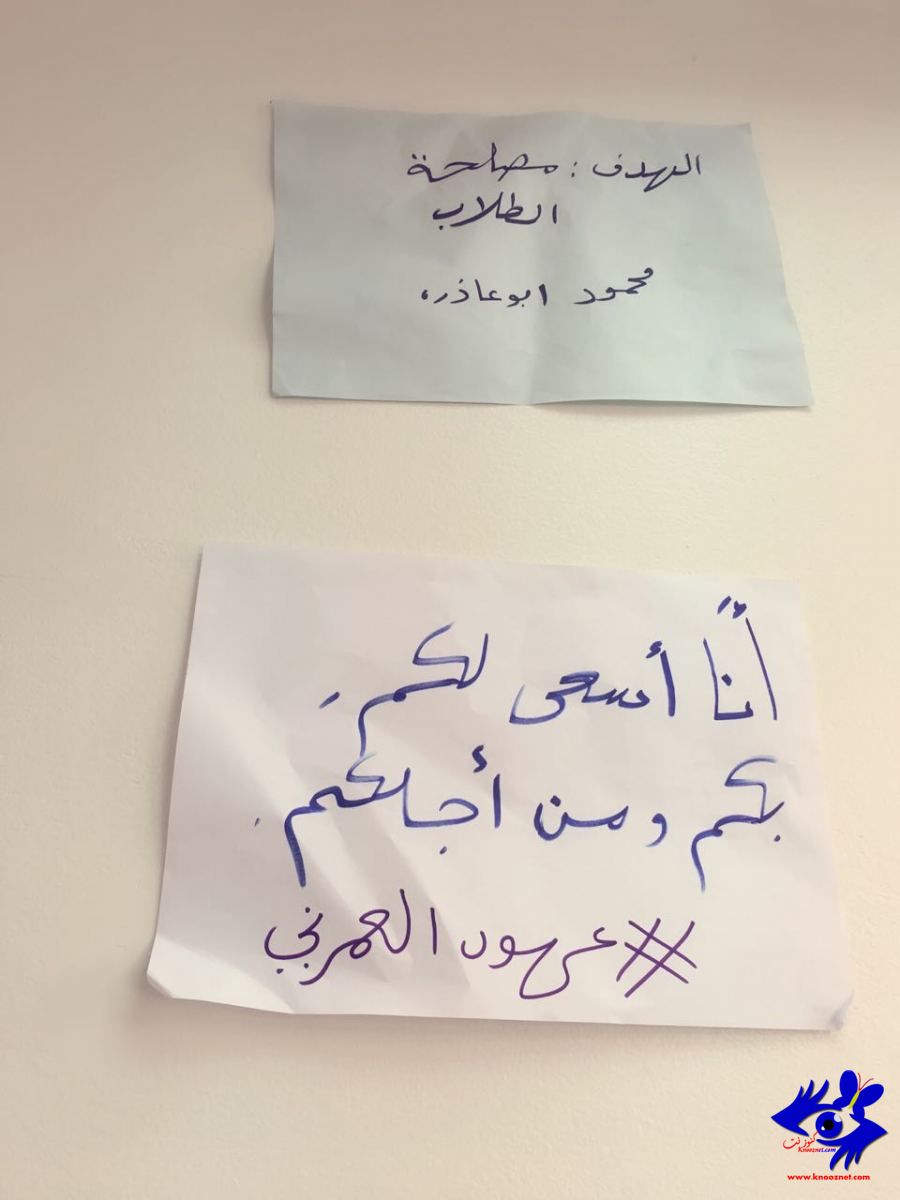 الهدف : مصلحة
الطلاب
محمود ابوعاذره
أنّا أسعى لكم،
بكم ومن أجلكم.
#عهود العمرني
كنوز نت
Knooznet.com
www.knooznet.com